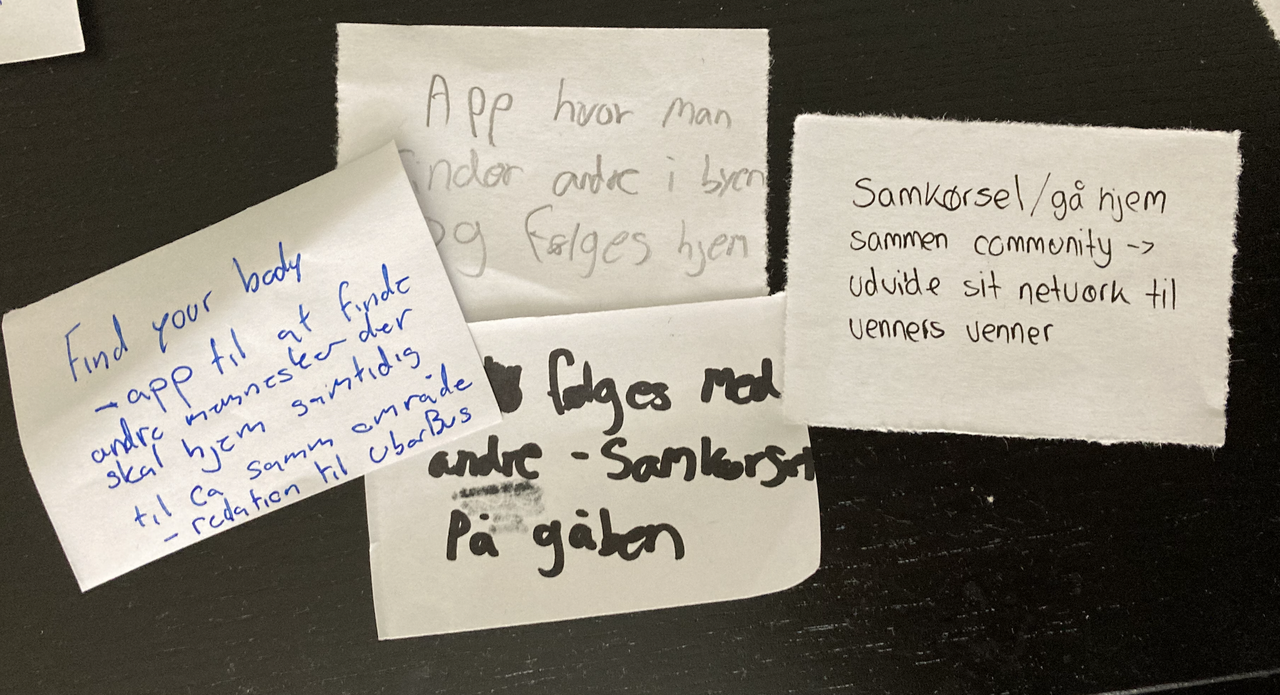 App hvor man
finder andre i byen
og følges hjem
Find your body
→ app til at finde
andre mennesker der
skal hjem samtidig
til ca samm område
- redation til uberBus
følges med
andre - Samkørsel
På gåben
Samkørsel/gå hjem
sammen community ->
udvide sit network til
venners venner